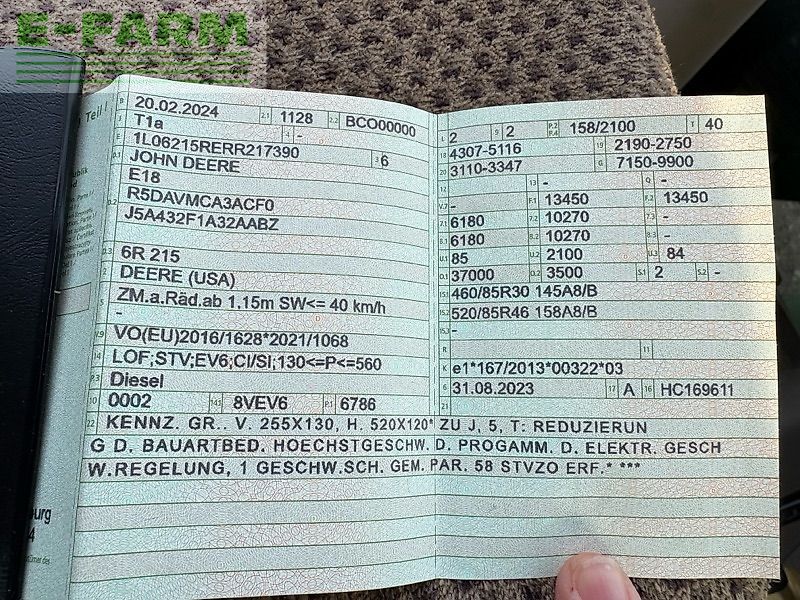 E-FARM
Teil I
B 20.02.2024 2.1 1128 2.2 BCO00000
J T1a 4 -
E 1L06215RERR217390 3 6
D.1 JOHN DEERE
E18
D.2 R5DAVMCA3ACF0
J5A432F1A32AABZ
D.3 6R 215
2 DEERE (USA)
5 ZM.a.Räd.ab 1,15m SW<= 40 km/h
-
V.9 VO(EU)2016/1628*2021/1068
14 LOF;STV;EV6;CI/SI;130<=P<=560
P.3 Diesel
10 0002 14.1 8VEV6 P.1 6786
L 2 9 2 P.2 P.4 158/2100 T 40
18 4307-5116 19 2190-2750
20 3110-3347 G 7150-9900
12 - 13 - Q -
V.7 - F.1 13450 F.2 13450
7.1 6180 7.2 10270 7.3 -
8.1 6180 8.2 10270 8.3 -
U.1 85 U.2 2100 U.3 84
O.1 37000 O.2 3500 S.1 2 S.2 -
15.1 460/85R30 145A8/B
15.2 520/85R46 158A8/B
15.3 -
R 11
K e1*167/2013*00322*03
6 31.08.2023 17 A 16 HC169611
21
22 KENNZ. GR.. V. 255X130, H. 520X120* ZU J, 5, T: REDUZIERUN
G D. BAUARTBED. HOECHSTGESCHW. D. PROGAMM. D. ELEKTR. GESCH
W.REGELUNG, 1 GESCHW.SCH. GEM. PAR. 58 STVZO ERF.* ***